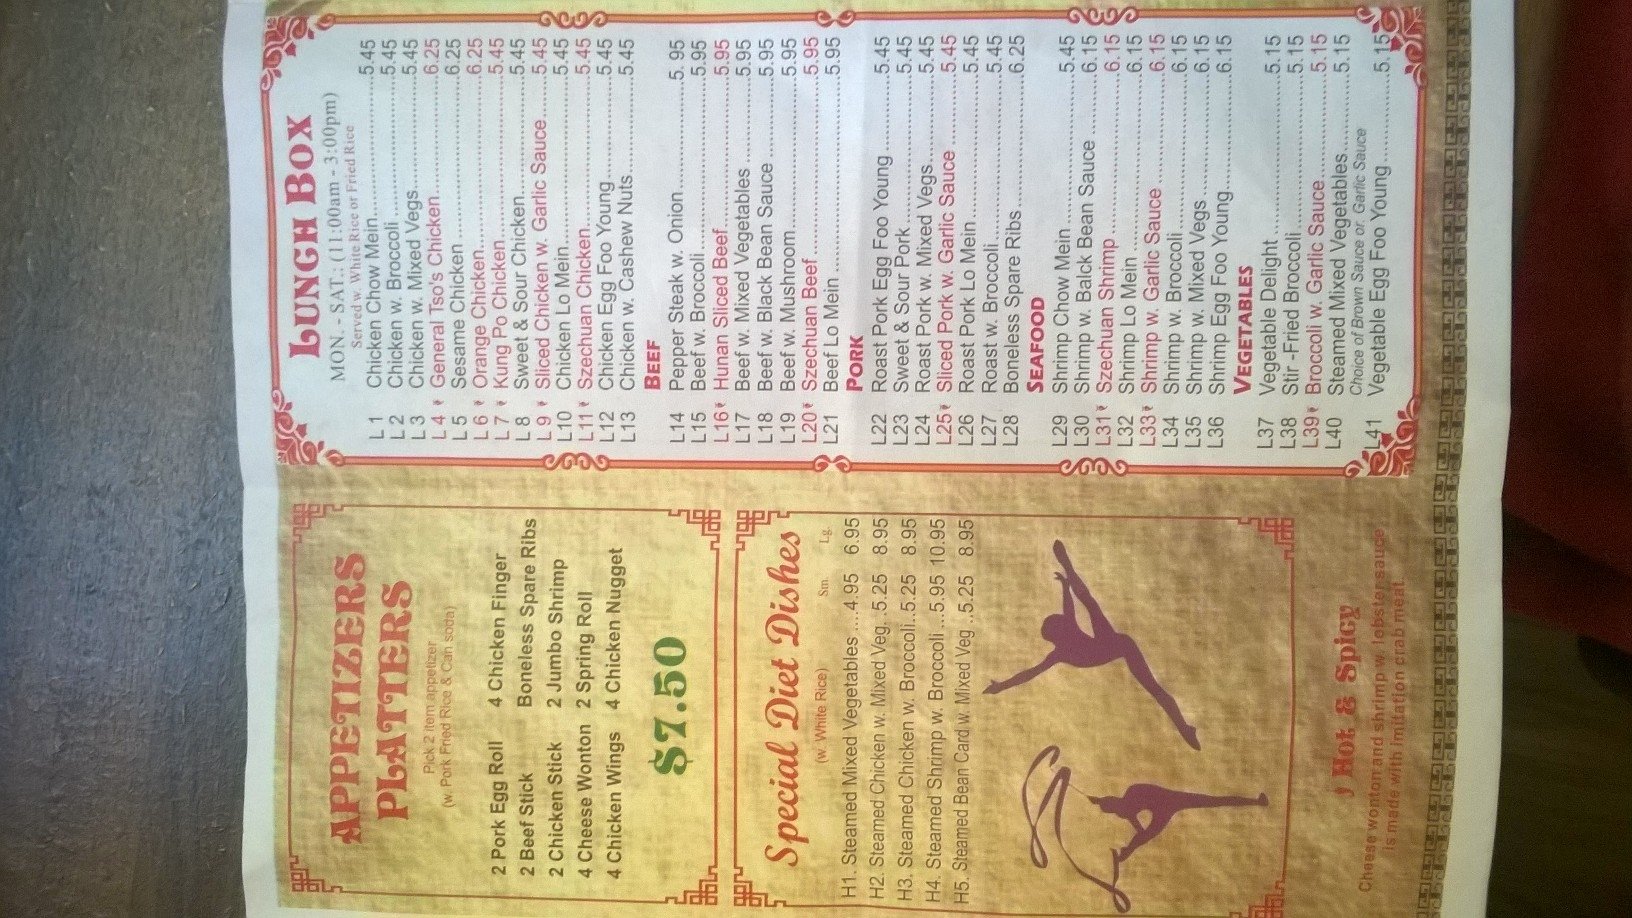 APPETIZERS
PLATTERS
Pick 2 item appetizer
(w. Pork Fried Rice & Can soda)
2 Pork Egg Roll 4 Chicken Finger
2 Beef Stick Boneless Spare Ribs
2 Chicken Stick 2 Jumbo Shrimp
4 Cheese Wonton 2 Spring Roll
4 Chicken Wings 4 Chicken Nugget
$7.50
Special Diet Dishes
(w. White Rice) Sm. Lg.
H1. Steamed Mixed Vegetables ....4.95 6.95
H2. Steamed Chicken w. Mixed Veg..5.25 8.95
H3. Steamed Chicken w. Broccoli...5.25 8.95
H4. Steamed Shrimp w. Broccoli ...5.95 10.95
H5. Steamed Bean Card w. Mixed Veg ..5.25 8.95
Hot & Spicy
Cheese wonton and shrimp w. lobster sauce
is made with imitation crab meat
LUNCH BOX
MON. - SAT.: (11:00am - 3:00pm)
Served w. White Rice or Fried Rice
L 1 Chicken Chow Mein 5.45
L 2 Chicken w. Broccoli 5.45
L 3 Chicken w. Mixed Vegs 5.45
L 4 General Tso's Chicken 6.25
L 5 Sesame Chicken 6.25
L 6 Orange Chicken 6.25
L 7 Kung Po Chicken 5.45
L 8 Sweet & Sour Chicken 5.45
L 9 Sliced Chicken w. Garlic Sauce 5.45
L10 Chicken Lo Mein 5.45
L11 Szechuan Chicken 5.45
L12 Chicken Egg Foo Young 5.45
L13 Chicken w. Cashew Nuts 5.45
BEEF
L14 Pepper Steak w. Onion 5.95
L15 Beef w. Broccoli 5.95
L16 Hunan Sliced Beef 5.95
L17 Beef w. Mixed Vegetables 5.95
L18 Beef w. Black Bean Sauce 5.95
L19 Beef w. Mushroom 5.95
L20 Szechuan Beef 5.95
L21 Beef Lo Mein 5.95
PORK
L22 Roast Pork Egg Foo Young 5.45
L23 Sweet & Sour Pork 5.45
L24 Roast Pork w. Mixed Vegs 5.45
L25 Sliced Pork w. Garlic Sauce 5.45
L26 Roast Pork Lo Mein 5.45
L27 Roast w. Broccoli 5.45
L28 Boneless Spare Ribs 6.25
SEAFOOD
L29 Shrimp Chow Mein 5.45
L30 Shrimp w. Balck Bean Sauce 6.15
L31 Szechuan Shrimp 6.15
L32 Shrimp Lo Mein 6.15
L33 Shrimp w. Garlic Sauce 6.15
L34 Shrimp w. Broccoli 6.15
L35 Shrimp w. Mixed Vegs 6.15
L36 Shrimp Egg Foo Young 6.15
VEGETABLES
L37 Vegetable Delight 5.15
L38 Stir -Fried Broccoli 5.15
L39 Broccoli w. Garlic Sauce 5.15
L40 Steamed Mixed Vegetables 5.15
Choice of Brown Sauce or Garlic Sauce
L41 Vegetable Egg Foo Young 5.15